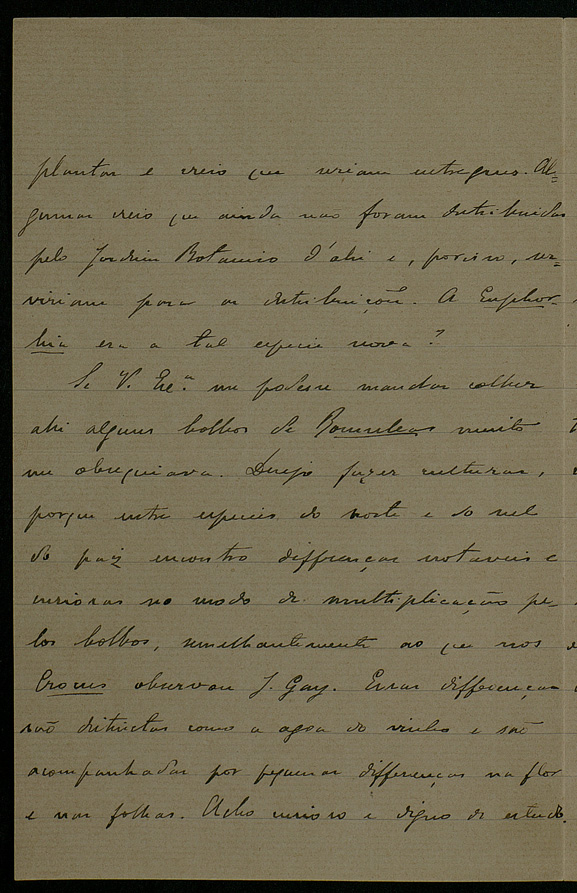 plantas e creio que seriam entregues. Al=
gumas creio que ainda não foram distribuidas
pelo Jardim Botanico d'ahi e, por isso, ser=
viriam para as distribuições. A Euphor-
bia era a tal especie nova?
Se V. Exª. me podesse mandar colher
ahi alguns bolbos de Romuleas muito
me obsequiava. Desejo fazer culturas,
porque entre especies do norte e do sul
do paiz encontro differenças notaveis e
curiosas no modo de multiplicação pe-
los bolbos, semelhantemente ao que nos
Crocus observou J. Gay. Essas differenças
são distinctas como a agoa do vinho e são
acompanhadas por pequenas differenças na flor
e nas folhas. Acho curioso e digno de estudo.